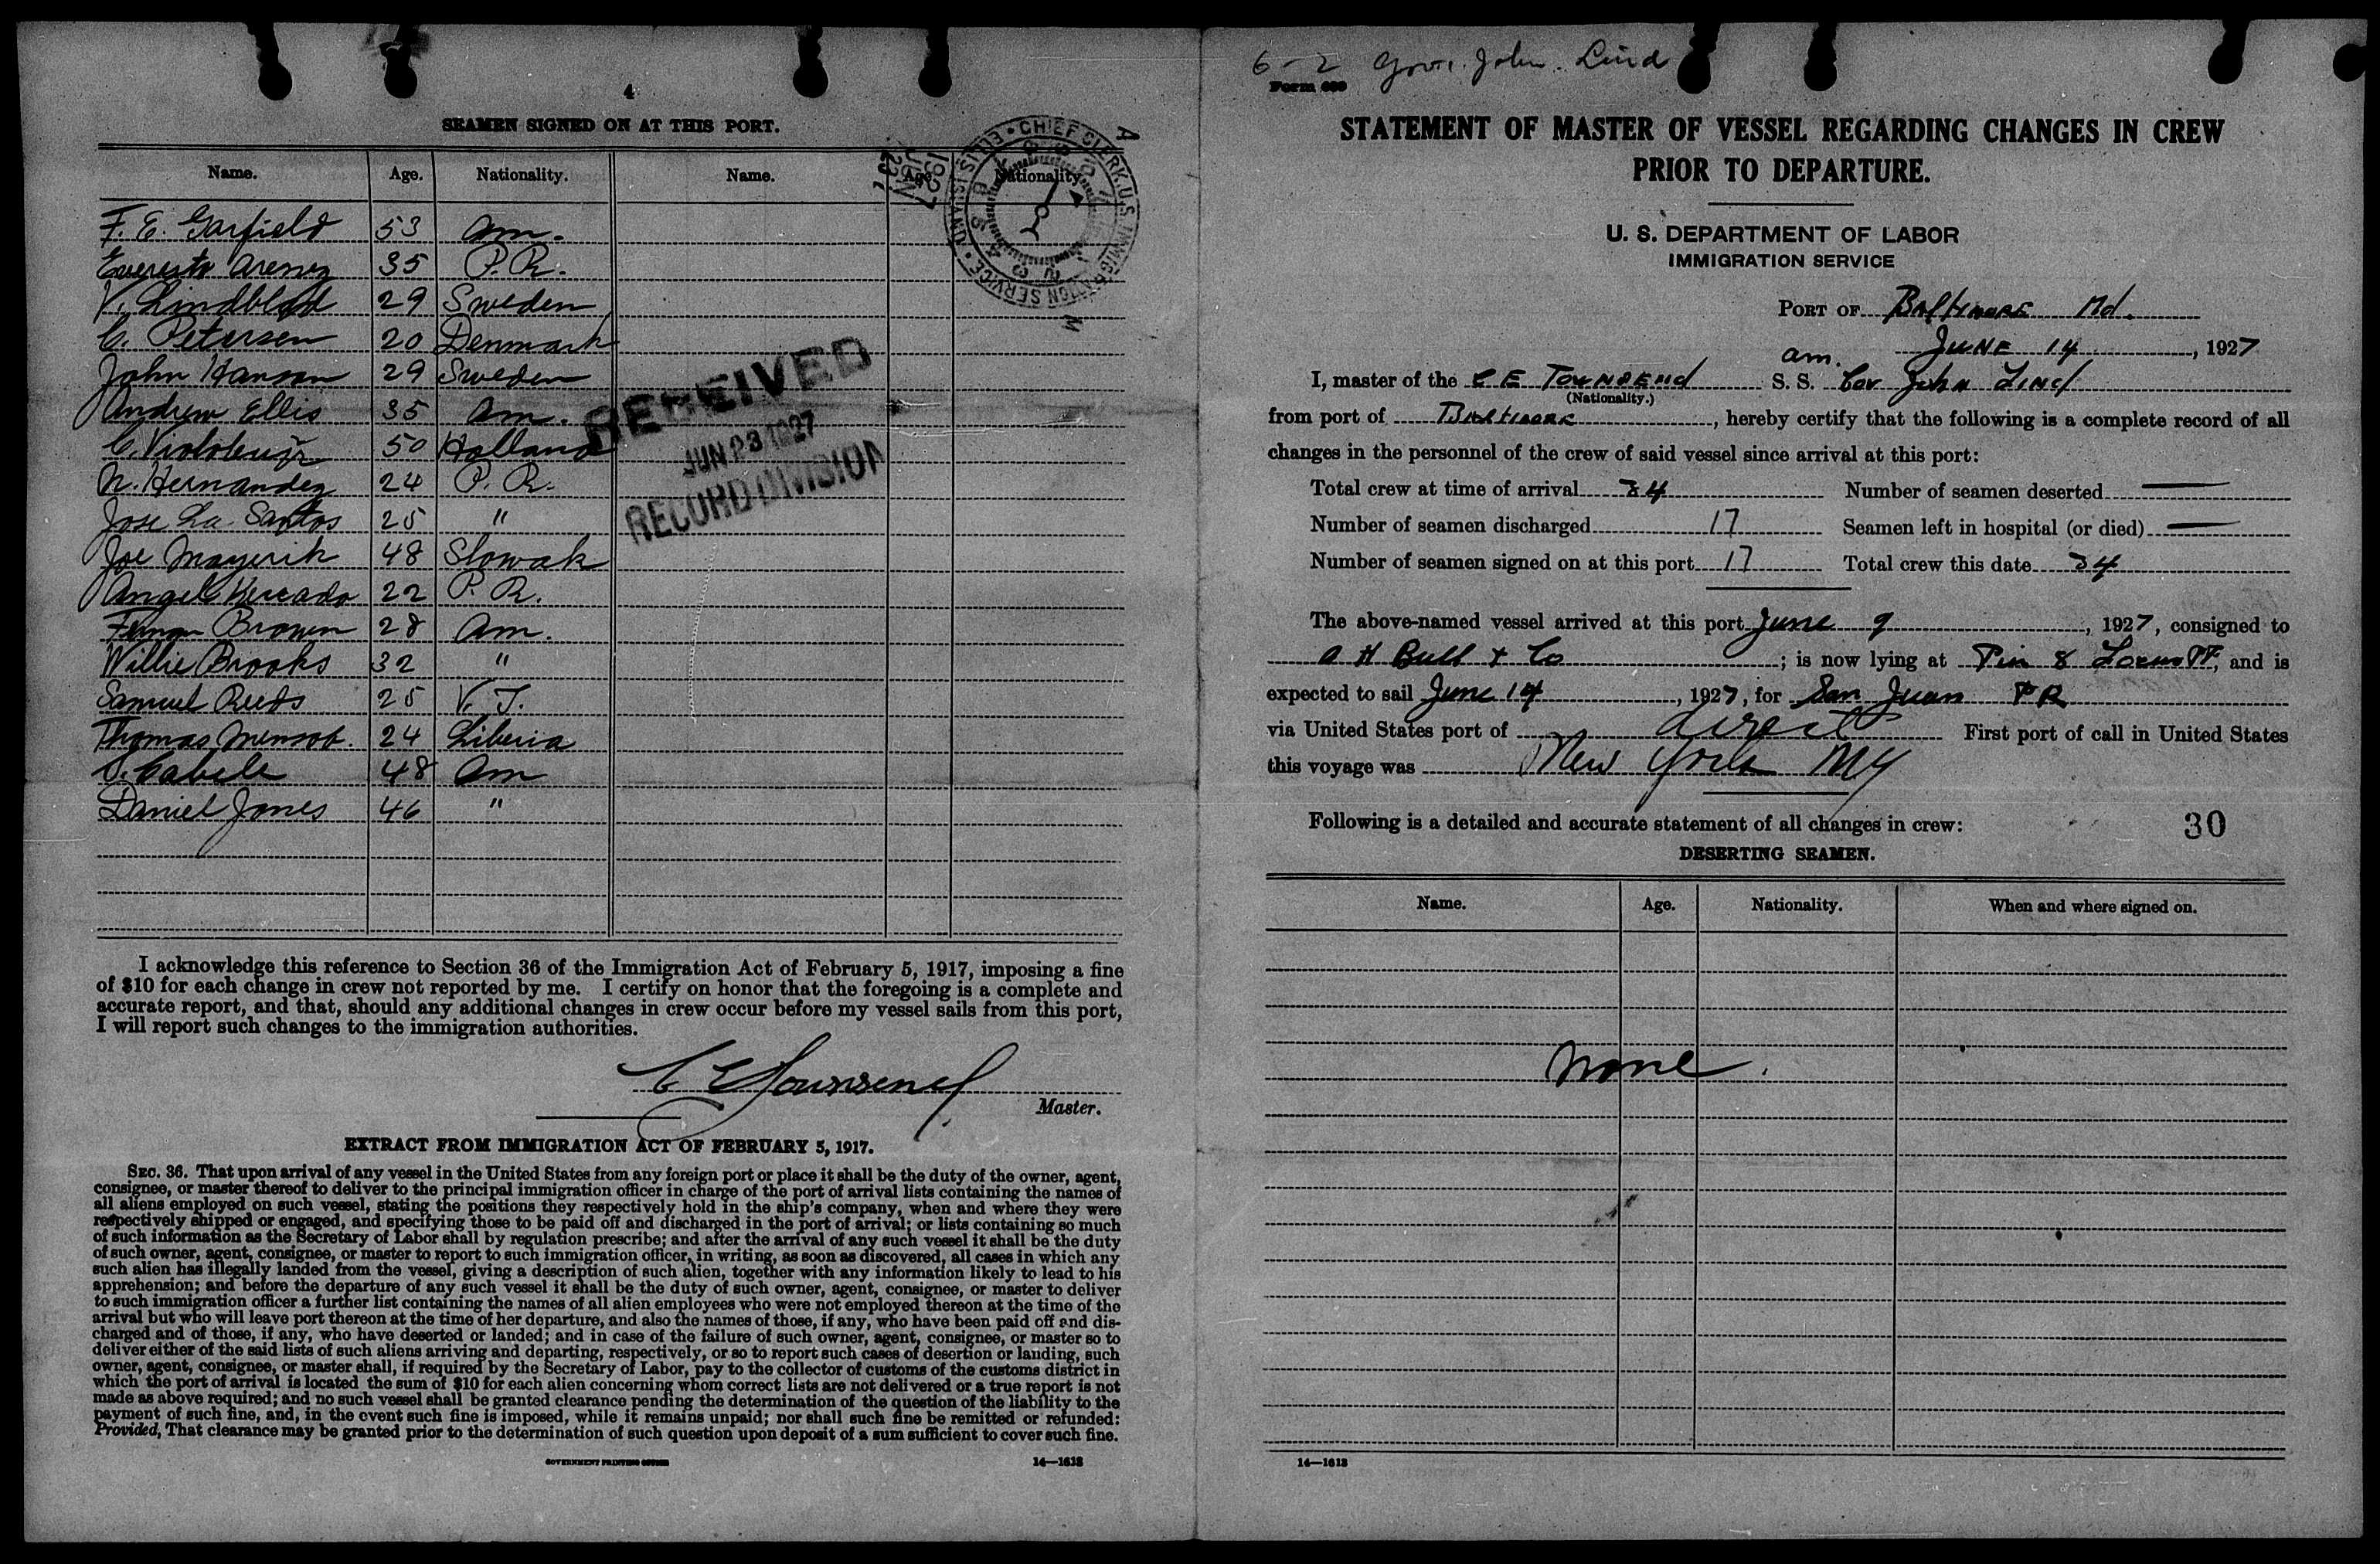 4
SEAMEN SIGNED ON AT THIS PORT.
Name. Age. Nationality. Name. Age. Nationality.
F. E. Garfield 53 Am.
35 P. R.
V. Lindblad 29 Sweden
C. Petersen 20 Denmark
John Hanson 29 Sweden
Andrew Ellis 35 Am.
C. 50 Holland
N. Hernandez 24 P. R.
Jose La Santos 25 "
Joe Mayerik 48 Slowak
Angel Mercado 22 P. R.
Brown 28 Am.
Willie Brooks 32 "
Samuel Reeds 25 V. I.
Thomas 24 Liberia
48 Am
Daniel Jones 46 "
CHIEF CLERK, U.S. IMMIGRATION SERVICE • ELLIS ISLAND •
1927 JUN 23
A M
RECEIVED
JUN 23 1927
RECORD DIVISION
I acknowledge this reference to Section 36 of the Immigration Act of February 5, 1917, imposing a fine
of $10 for each change in crew not reported by me. I certify on honor that the foregoing is a complete and
accurate report, and that, should any additional changes in crew occur before my vessel sails from this port,
I will report such changes to the immigration authorities.
C E Townsend
Master.
EXTRACT FROM IMMIGRATION ACT OF FEBRUARY 5, 1917.
SEC. 36. That upon arrival of any vessel in the United States from any foreign port or place it shall be the duty of the owner, agent,
consignee, or master thereof to deliver to the principal immigration officer in charge of the port of arrival lists containing the names of
all aliens employed on such vessel, stating the positions they respectively hold in the ship's company, when and where they were
respectively shipped or engaged, and specifying those to be paid off and discharged in the port of arrival; or lists containing so much
of such information as the Secretary of Labor shall by regulation prescribe; and after the arrival of any such vessel it shall be the duty
of such owner, agent, consignee, or master to report to such immigration officer, in writing, as soon as discovered, all cases in which any
such alien has illegally landed from the vessel, giving a description of such alien, together with any information likely to lead to his
apprehension; and before the departure of any such vessel it shall be the duty of such owner, agent, consignee, or master to deliver
to such immigration officer a further list containing the names of all alien employees who were not employed thereon at the time of the
arrival but who will leave port thereon at the time of her departure, and also the names of those, if any, who have been paid off and dis-
charged and of those, if any, who have deserted or landed; and in case of the failure of such owner, agent, consignee, or master so to
deliver either of the said lists of such aliens arriving and departing, respectively, or so to report such cases of desertion or landing, such
owner, agent, consignee, or master shall, if required by the Secretary of Labor, pay to the collector of customs of the customs district in
which the port of arrival is located the sum of $10 for each alien concerning whom correct lists are not delivered or a true report is not
made as above required; and no such vessel shall be granted clearance pending the determination of the question of the liability to the
payment of such fine, and, in the event such fine is imposed, while it remains unpaid; nor shall such fine be remitted or refunded:
Provided, That clearance may be granted prior to the determination of such question upon deposit of a sum sufficient to cover such fine.
GOVERNMENT PRINTING OFFICE 14—1613
6-2 Gov. John Lind
Form
STATEMENT OF MASTER OF VESSEL REGARDING CHANGES IN CREW
PRIOR TO DEPARTURE.
U. S. DEPARTMENT OF LABOR
IMMIGRATION SERVICE
PORT OF Baltimore Md.
JUNE 14, 1927
I, master of the C E Townsend am. S. S. Gov John Lind
(Nationality.)
from port of Baltimore, hereby certify that the following is a complete record of all
changes in the personnel of the crew of said vessel since arrival at this port:
Total crew at time of arrival 34 Number of seamen deserted —
Number of seamen discharged 17 Seamen left in hospital (or died) —
Number of seamen signed on at this port 17 Total crew this date 34
The above-named vessel arrived at this port June 9, 1927, consigned to
A H Bull & Co; is now lying at Pier 8 , and is
expected to sail June 14, 1927, for San Juan P R
via United States port of direct First port of call in United States
this voyage was New York NY
Following is a detailed and accurate statement of all changes in crew:
30
DESERTING SEAMEN.
Name. Age. Nationality. When and where signed on.
none.
14—1613